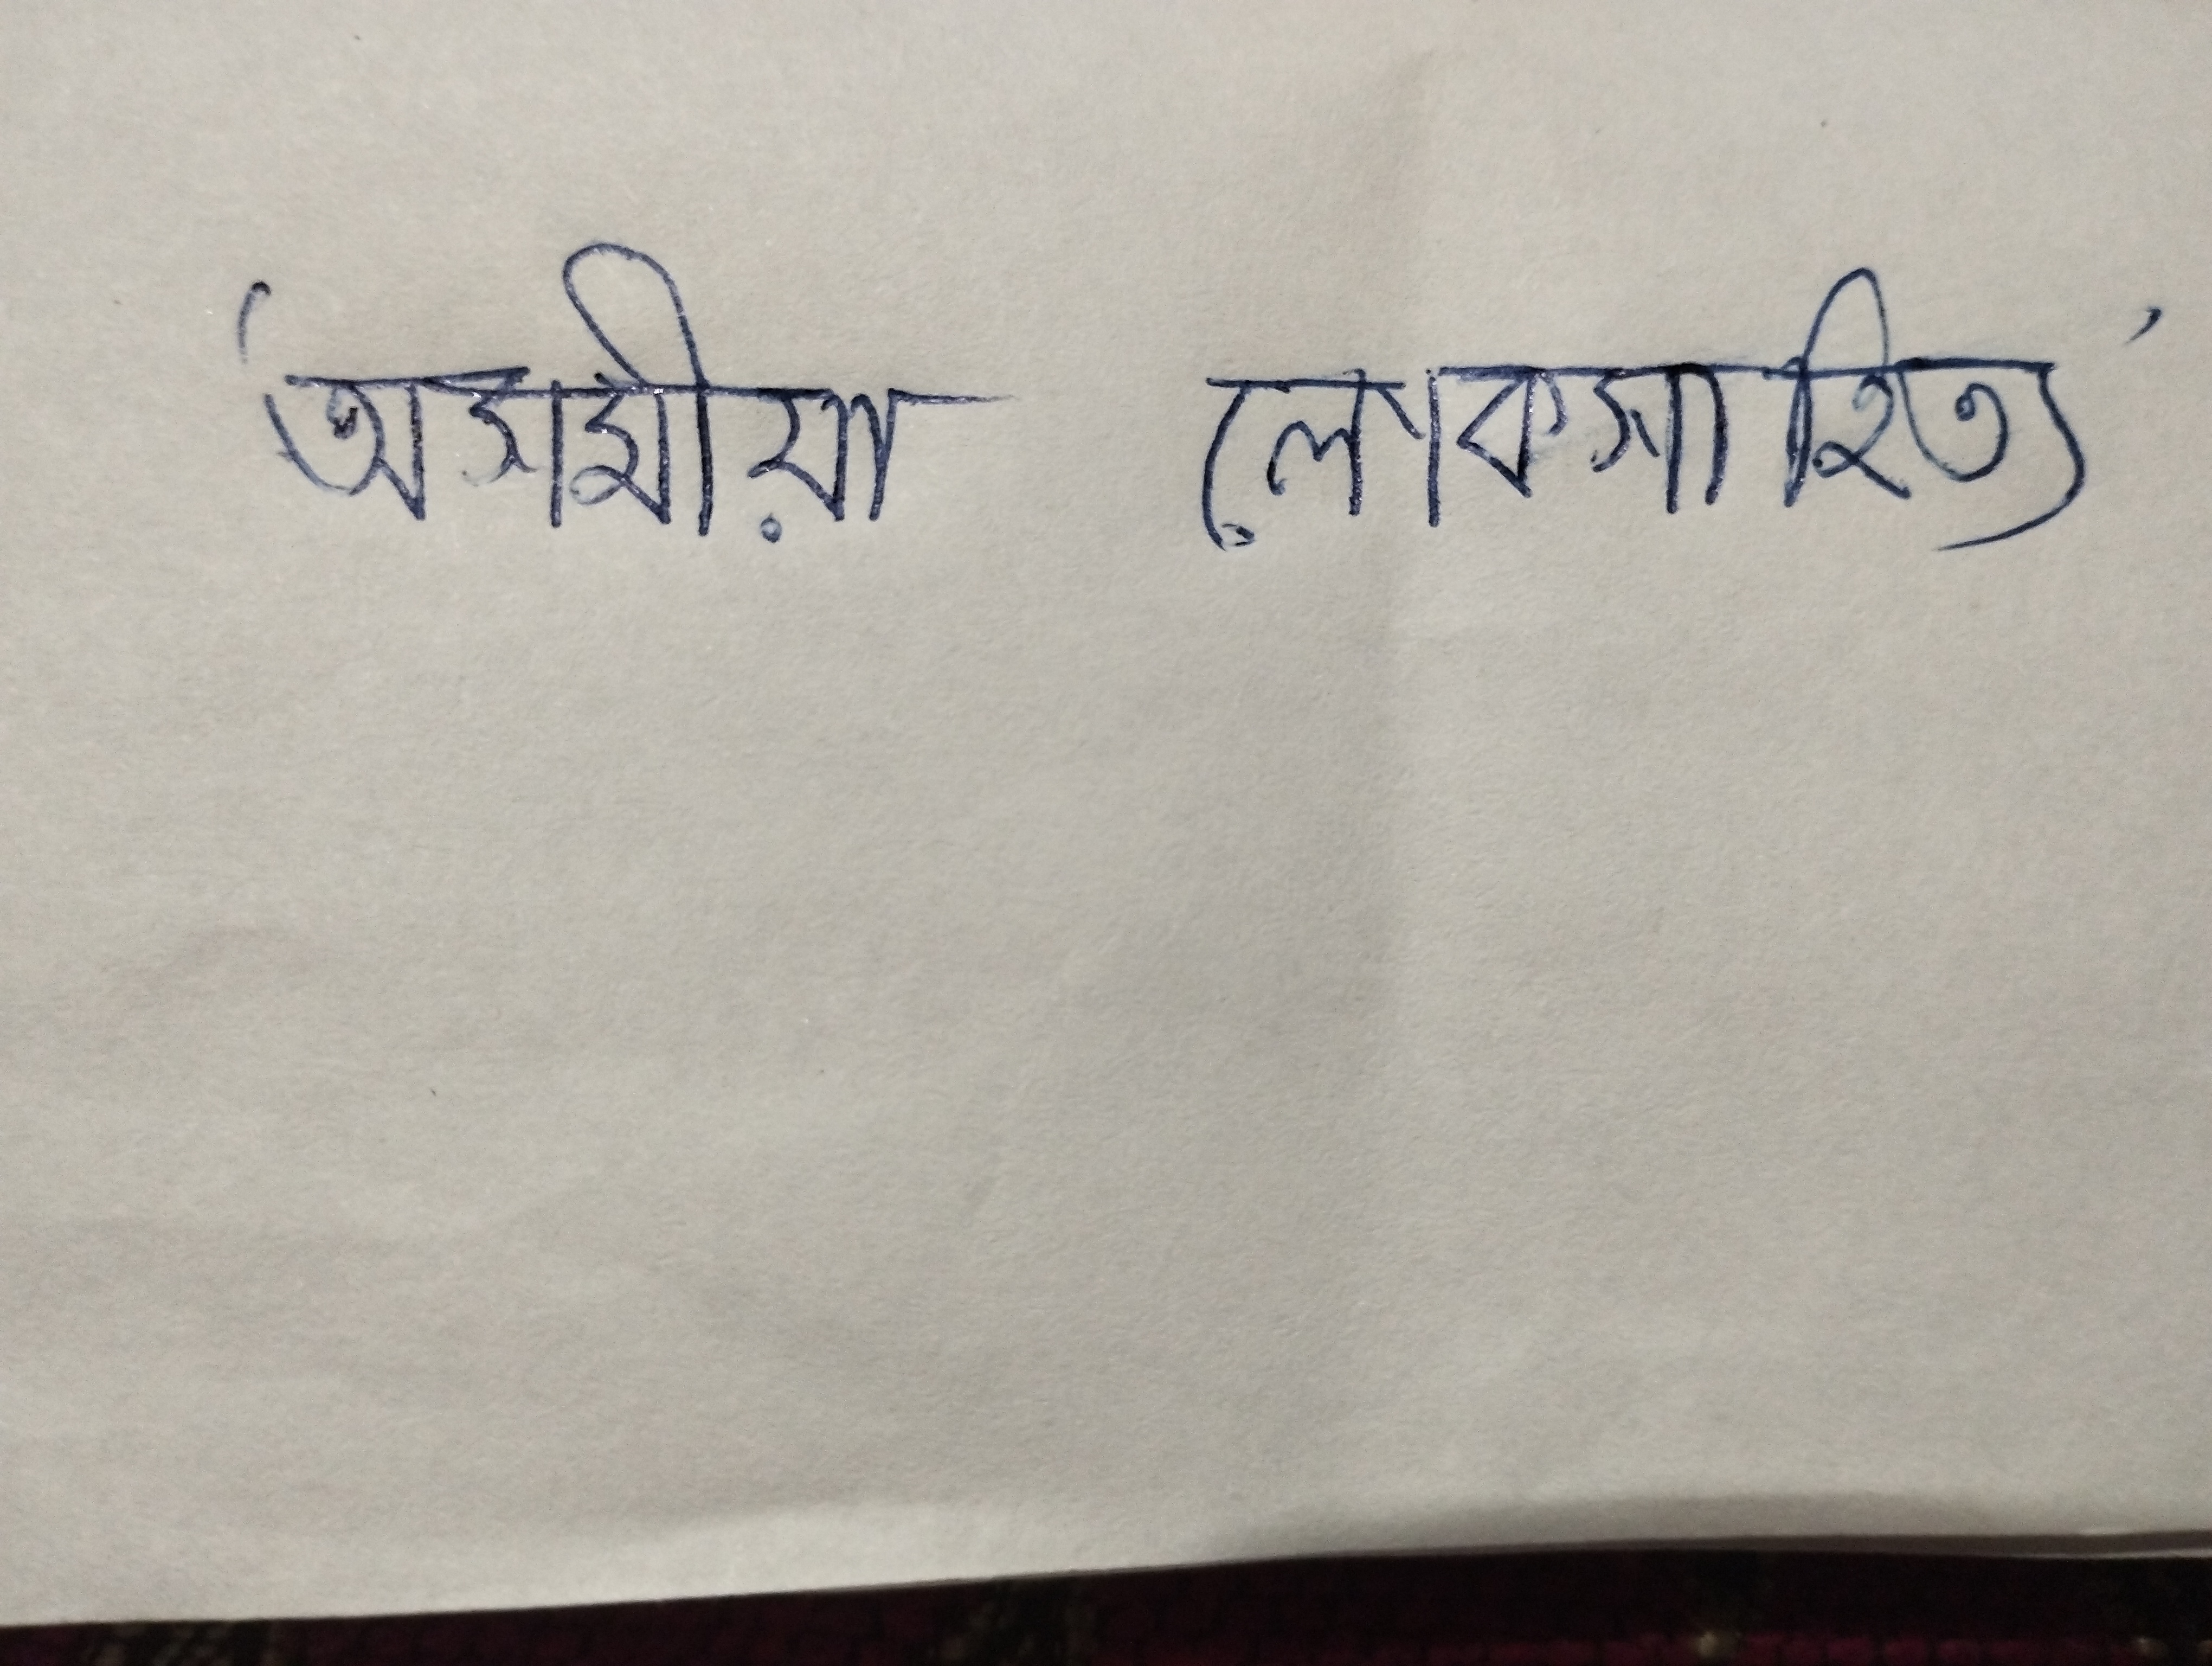 'অসমীয়া লোকসাহিত্য'